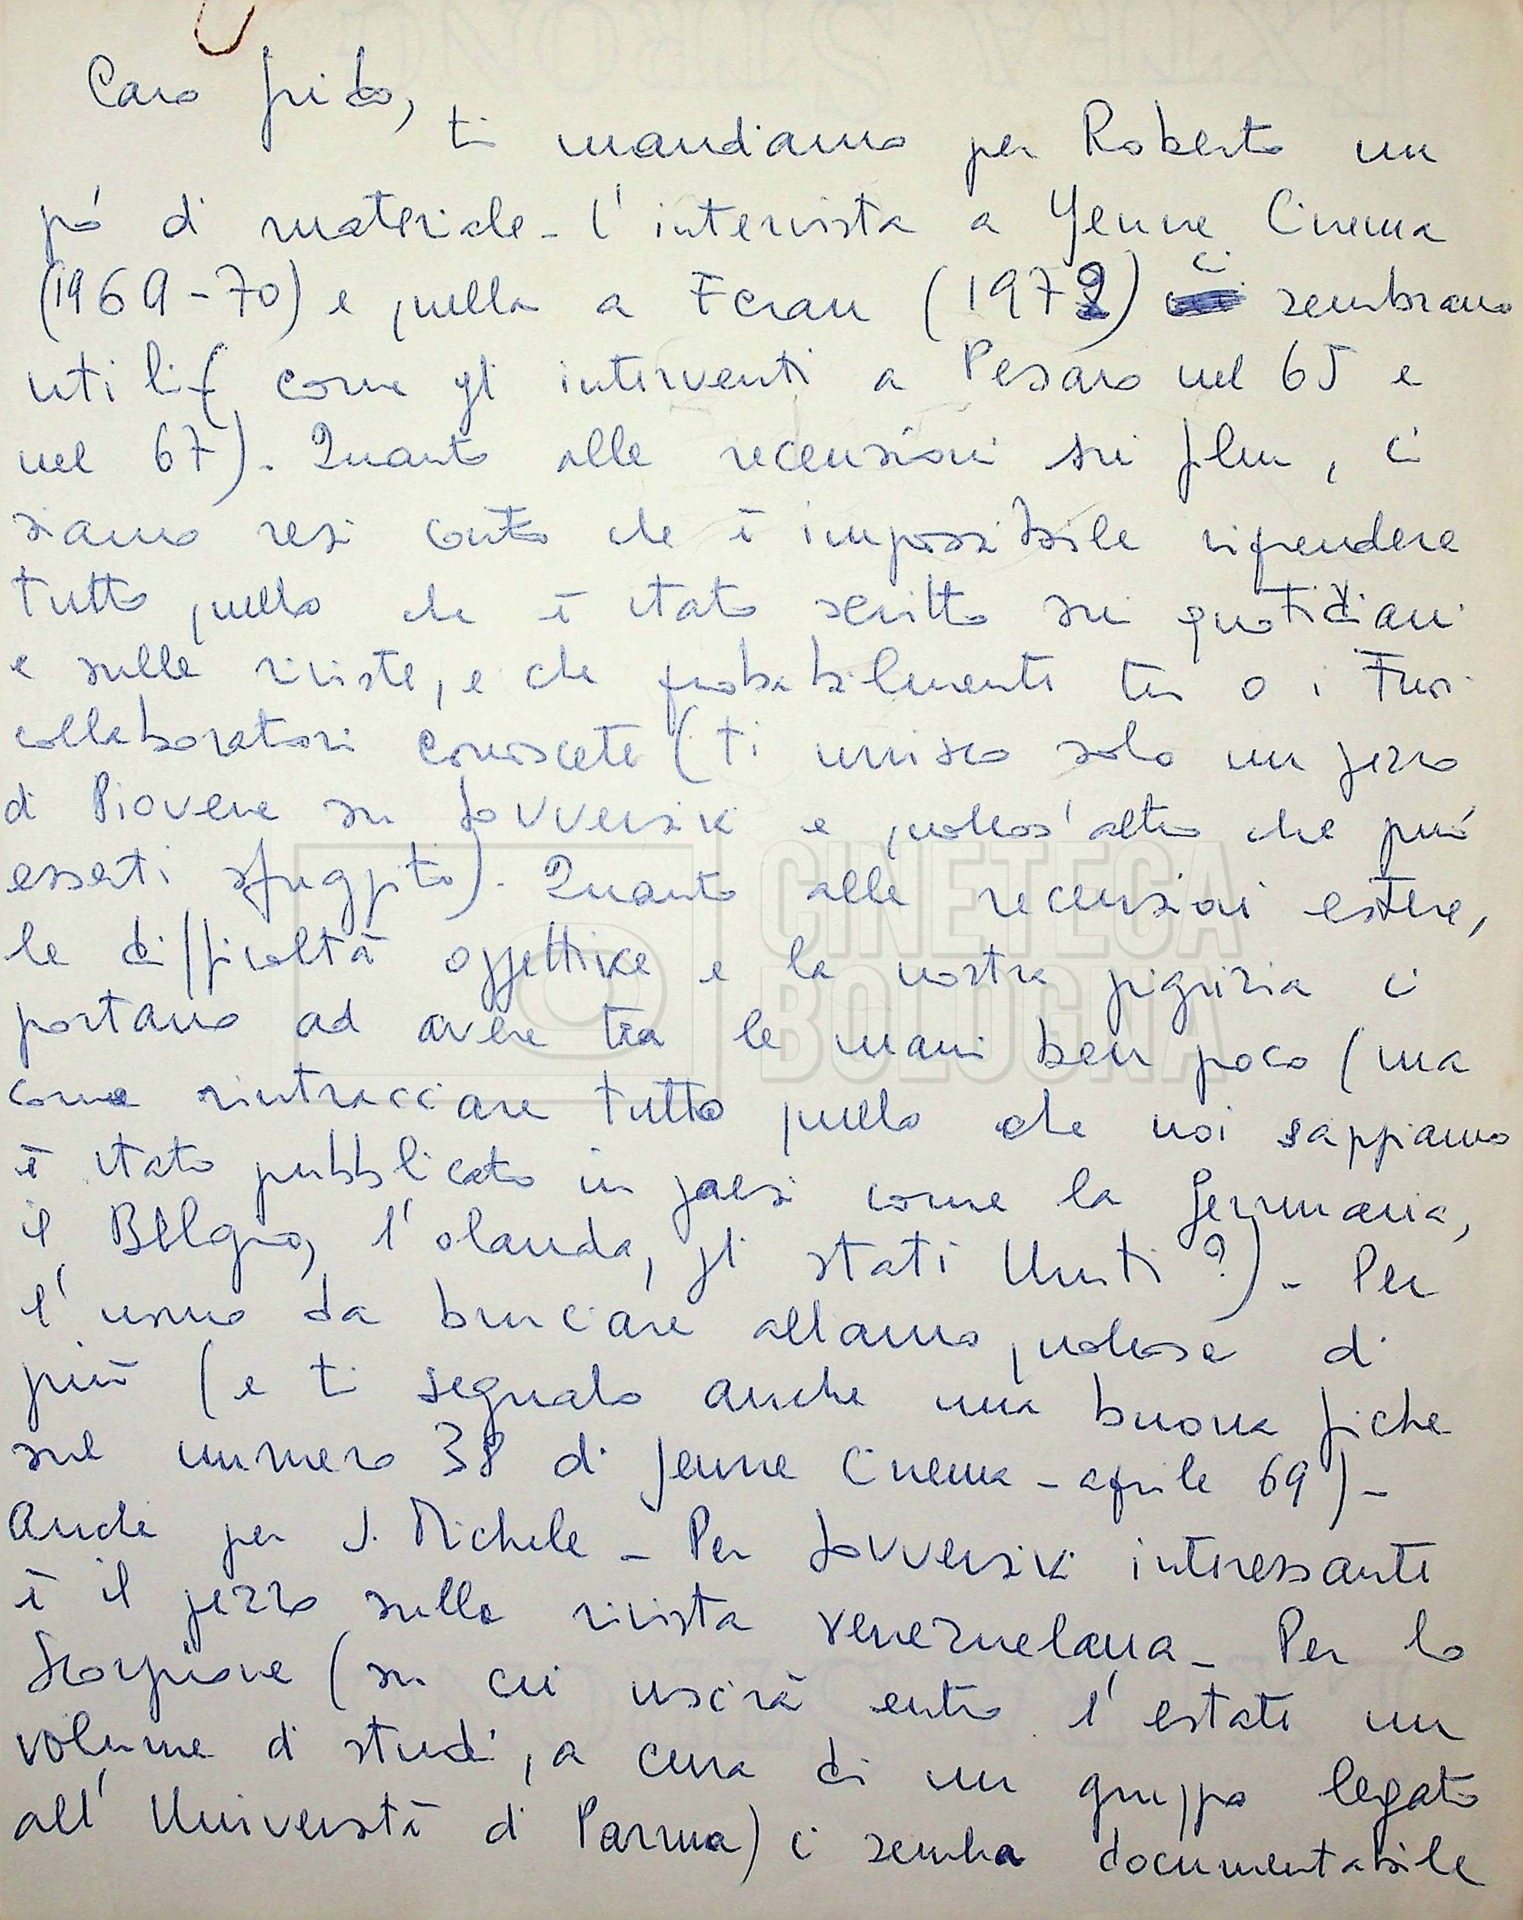 Caro Guido,
ti mandiamo per Roberto un
pò di materiale - l'intervista a Jeune Cinema
(1969-70) e quella a Ecran (1972) ci sembrano
utili (come gli interventi a Pesaro nel 65 e
nel 67). Quanto alle recensioni sui film, ci
siamo resi conto che è impossibile riprendere
tutto quello che è stato scritto sui quotidiani
e sulle riviste, e che probabilmente tu o i tuoi
collaboratori conoscete (ti unisco solo un pezzo
di Piovene su Sovversivi e qualcos'altro che può
esserti sfuggito). Quanto alle recensioni estere,
le difficoltà oggettive e la nostra pigrizia ci
portano ad avere tra le mani ben poco (ma
come rintracciare tutto quello che noi sappiamo
è stato pubblicato in paesi come la Germania,
il Belgio, l'olanda, gli stati Uniti?) - Per
l'uomo da bruciare abbiamo qualcosa di
più (e ti segnalo anche una buona fiche
sul numero 38 di Jeune Cinema - aprile 69) -
Anche per S. Michele - Per Sovversivi interessante
è il pezzo sulla rivista venezuelana - Per lo
Scorpione (su cui uscirà entro l'estate un
volume di studi, a cura di un gruppo legato
all'Università di Parma) ci sembra documentabile
CINETECA
BOLOGNA